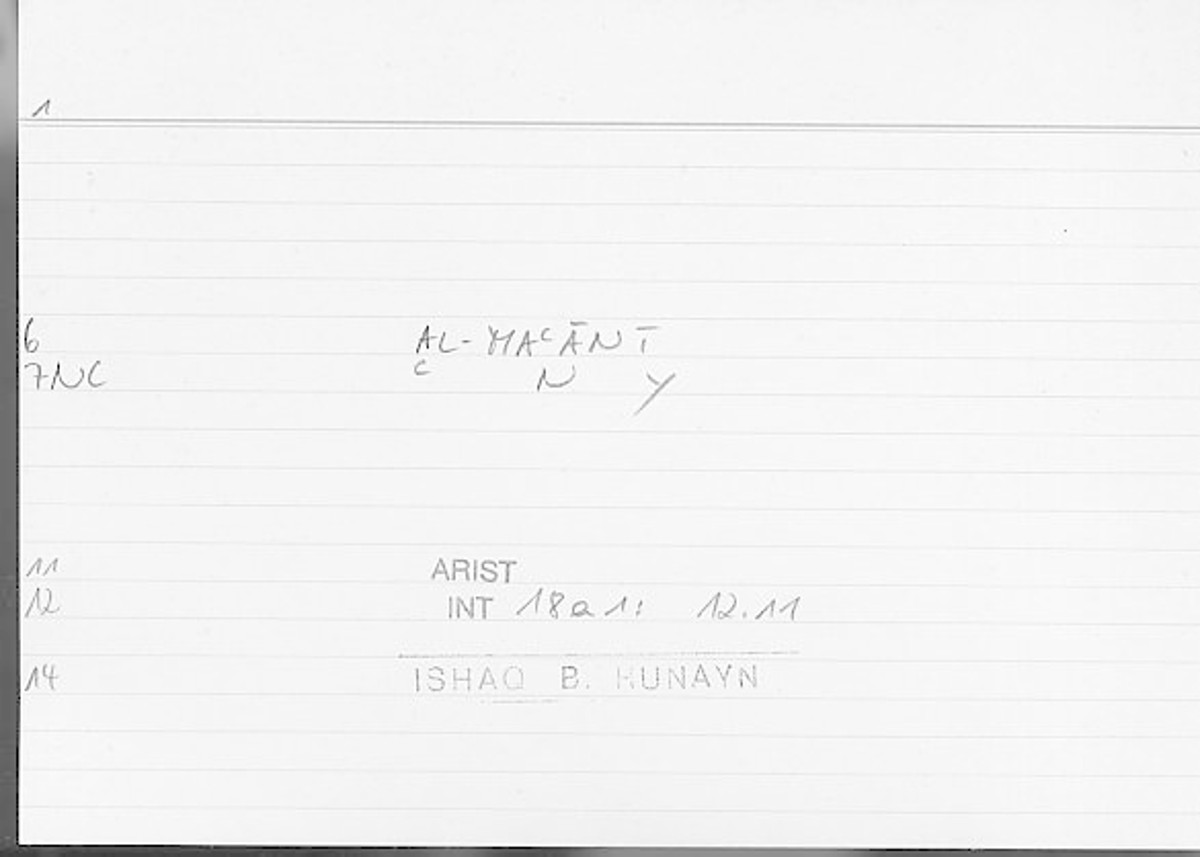 1
6 AL-MAʿĀNĪ
7NC ʿ N Y
11 ARIST
12 INT 18a1: 12.11
14 ISHAQ B. HUNAYN